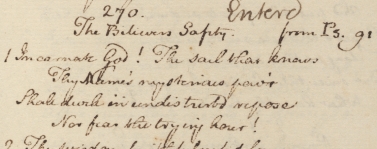 270. Entered
The Believers Safety. from Ps. 91
1 Incarnate God! The soul that knows
Thy Name's mysterious pow'r
Shall dwell in undisturb'd repose
Nor fear the trying hour!
2 The